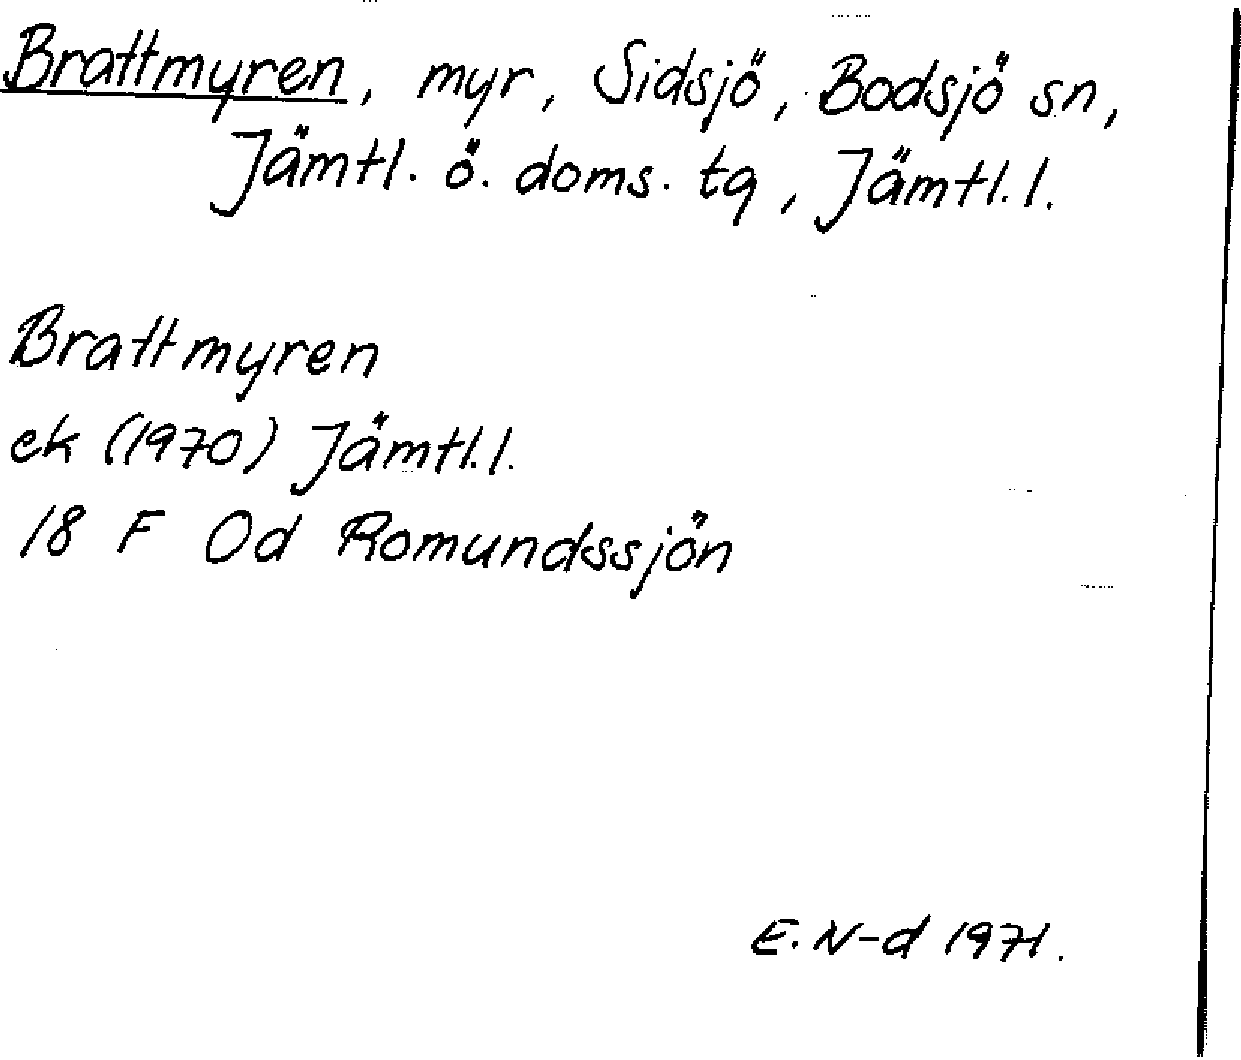 Brattmyren, myr, Sidsjö, Bodsjö sn,
Jämtl. ö. doms. tg, Jämtl. l.
Brattmyren
ek (1970) Jämtl. l.
18 F Od Romundssjön
E. N-d 1971.